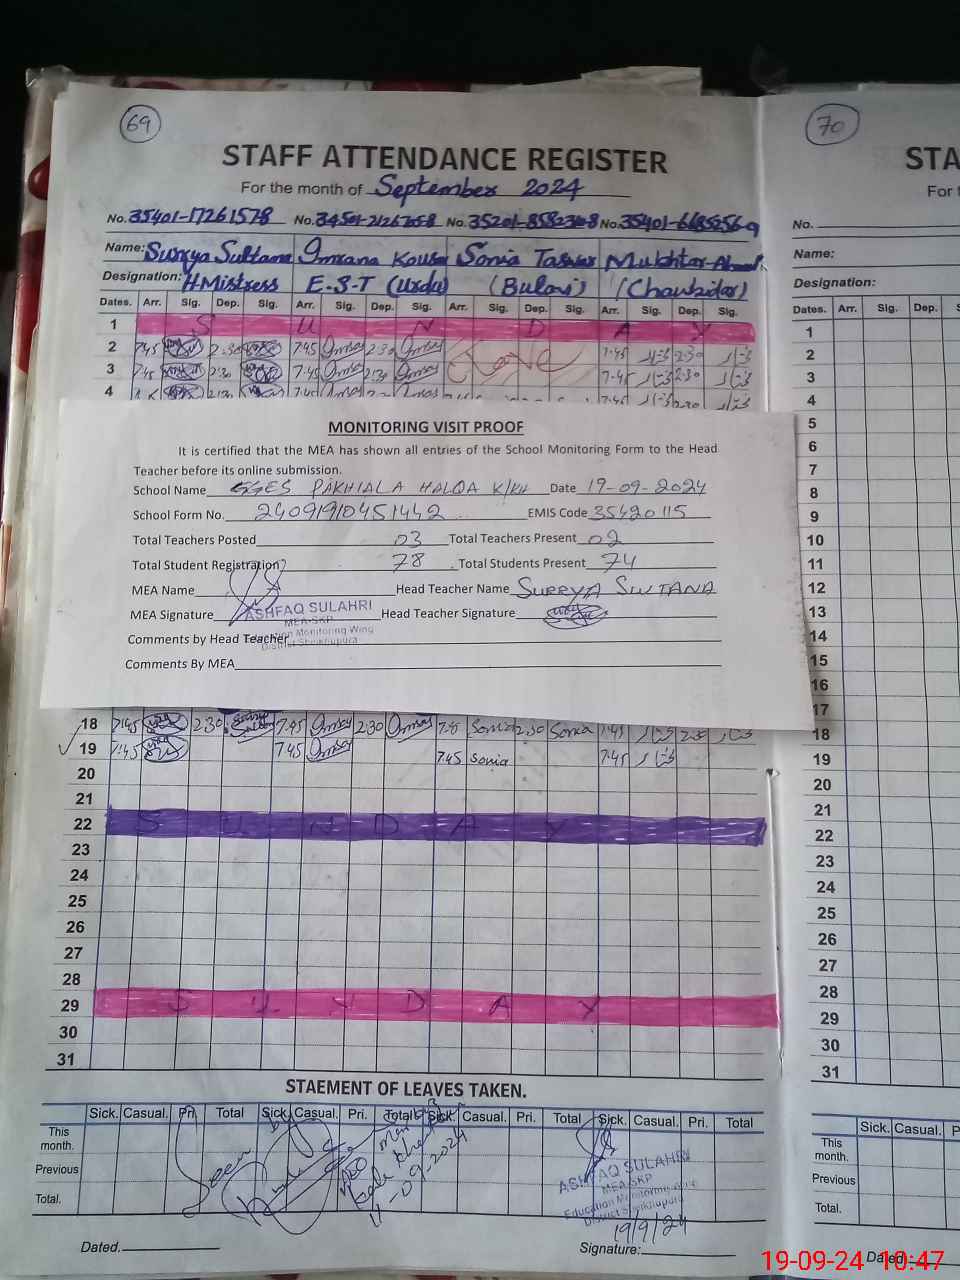 69
STAFF ATTENDANCE REGISTER
For the month of September 2024
No. 35401-1726157-8 No. No. No.
Name: Surrya Sultana Imrana Kousar Sonia Mukhtar Ahmad
Designation: H.Mistress E.S.T (Urdu) (Chowkidar)
Dates. Arr. Sig. Dep. Sig. Arr. Sig. Dep. Sig. Arr. Sig. Dep. Sig. Arr. Sig. Dep. Sig.
1 S U N D A Y
2 7:45 2:30 7:45 2:30 Leave 7:45 2:30
3 7:45 2:30 7:45 2:30 7:45 2:30
4 7:45
MONITORING VISIT PROOF
It is certified that the MEA has shown all entries of the School Monitoring Form to the Head
Teacher before its online submission.
School Name GGES PAKHIALA HALQA K/KH Date 19-09-2024
School Form No. 24091910451442 EMIS Code 35420115
Total Teachers Posted 03 Total Teachers Present 02
Total Student Registration? 78 . Total Students Present 74
MEA Name Head Teacher Name SURRYA SULTANA
MEA Signature Head Teacher Signature
ASHFAQ SULAHRI
MEA-SKP
Education Monitoring Wing
District Sheikhupura
Comments by Head Teacher
Comments By MEA
18 7:45 2:30 7:45 2:30 7:45 Sonia 2:30 Sonia 7:45 2:30
19 7:45 7:45 7:45 Sonia 7:45
20
21
22 S U N D A Y
23
24
25
26
27
28
29 S U N D A Y
30
31
STAEMENT OF LEAVES TAKEN.
Sick. Casual. Pri. Total Sick. Casual. Pri. Total Sick. Casual. Pri. Total Sick. Casual. Pri. Total
This month.
Previous
Total.
Seen by
-09-2024
ASHFAQ SULAHRI
MEA-SKP
Education Monitoring Wing
District Sheikhupura
19/9/24
Dated. Signature:
70
STA
For t
No.
Name:
Designation:
Dates. Arr. Sig. Dep. S
1
2
3
4
5
6
7
8
9
10
11
12
13
14
15
16
17
18
19
20
21
22
23
24
25
26
27
28
29
30
31
Sick. Casual. P
This month.
Previous
Total.
Dated.
19-09-24 10:47